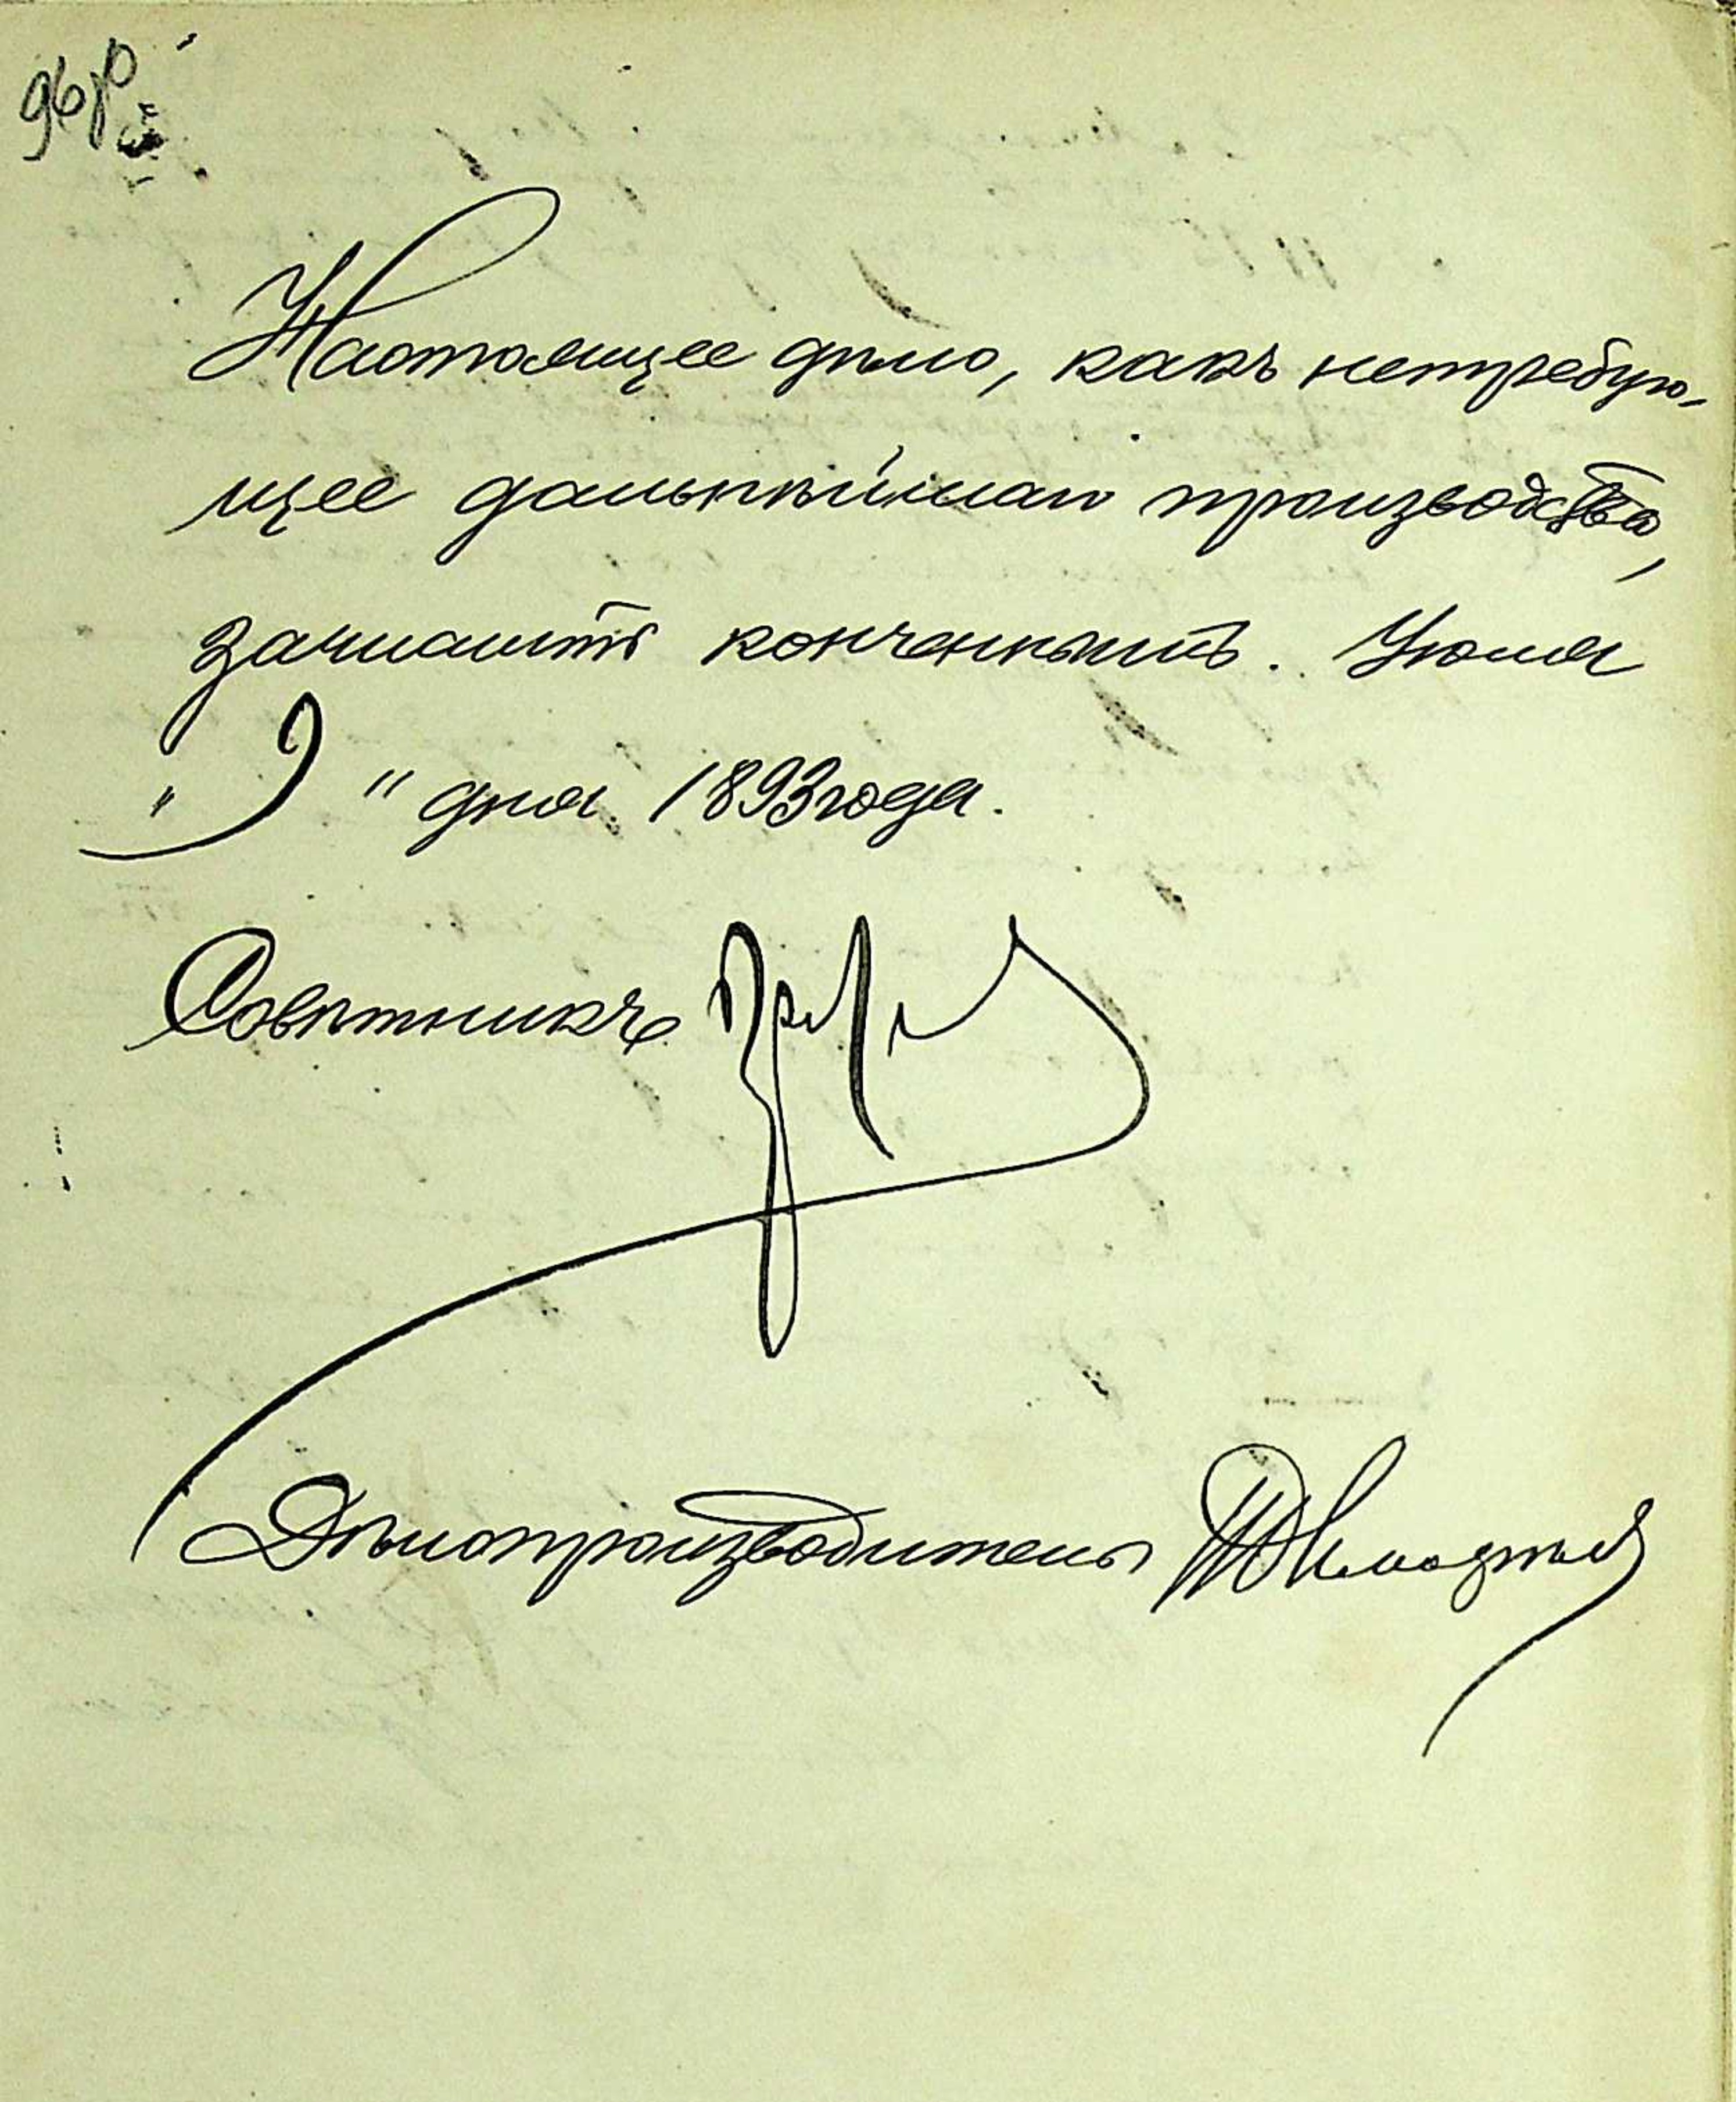 96
Настоящее дѣло, какъ нетребую-
щее дальнѣйшаго производства,
зачислить конченнымъ. Іюля
„ 9 " дня 1893 года.
Совѣтникъ
Дѣлопроизводитель